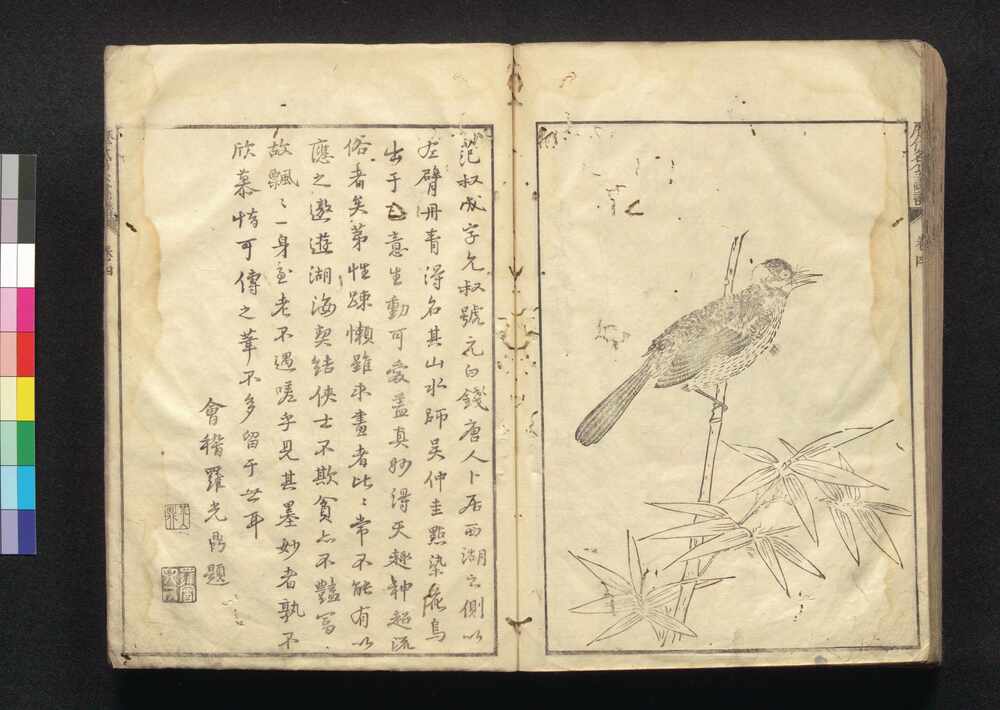 歷代名公畫譜 卷四
范叔成字允叔號元白錢唐人卜居西湖之側以
左臂丹青得名其山水師吳仲圭點染花鳥
出于己意生動可愛蓋真妙得天趣神超流
俗者矣第性踈懶雖求畫者比〻常不能有以
應之遨遊湖海契結俠士不欺貧亦不豔富
故飄〻一身至老不遇嗟乎見其墨妙者孰不
欣慕恃可傳之筆不多留于世耳
會稽羅光鼎題
卷四